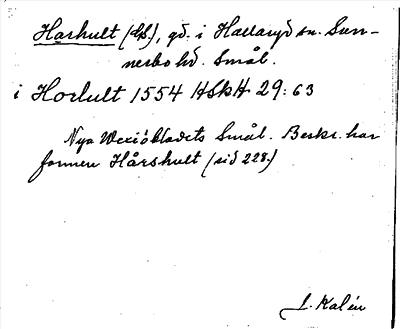 Harhult (Gs.), gd. i Hallaryd sn. Sun-
nerbo hd. Smål.
i Horlult 1554 HSkH 29:63
Nya Wexiöbladets Smål. Beskr. har
formen Hårshult (sid 228.)
J. Kalén